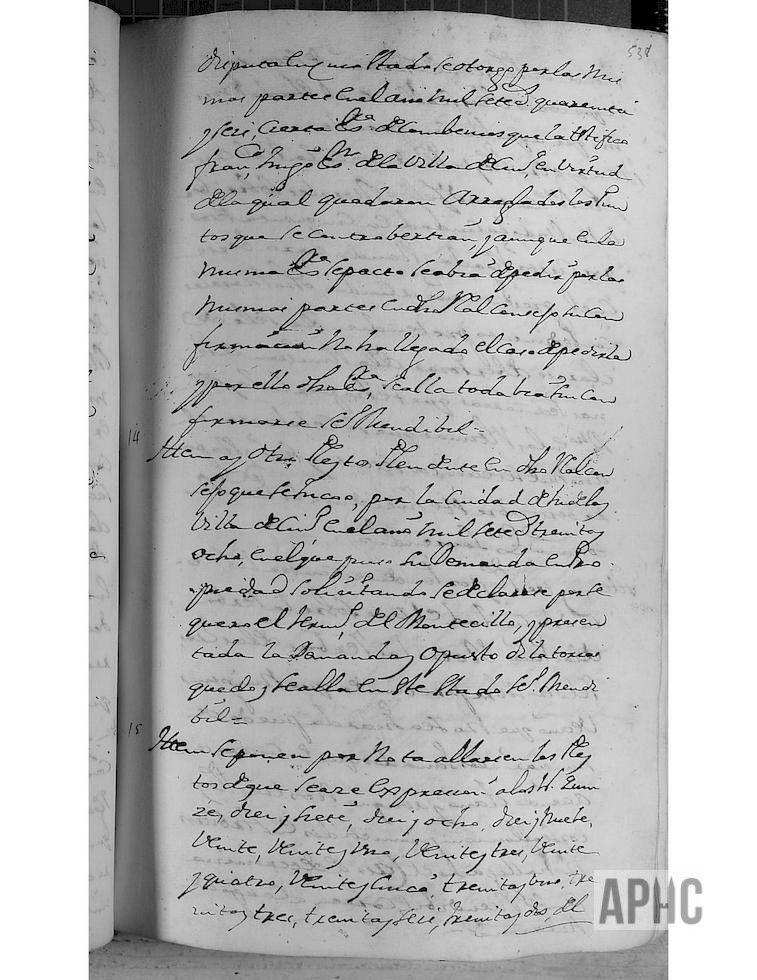 538
disputa cuio estado se otorgo por las mis
mas partes en el año mil sete.s quarenta
y seis, cierta Es.ra de combenios que la testifico
fran.co Iñigo Es.no de la Villa de en virtud
de la qual quedaron Arreglados los Pun
tos que se controbertian, y aunque en la
misma Es.ra se pacto se abia de pedir por las
mismas partes en dho Rl Consejo su con
firmacion no ha llegado el caso de pedirla
y por ello dha Es.ra, se alla toda bia sin con
firmarse
14 Ittem ay otro Pleyto Pendente en dho Rl con
sejo que se Inicio, por la Ciudad de y
Villa de en el año mil sete.s treinta y
ocho, en el que puso su Demanda en Pro
piedad solicitando se declarase perte
quero el term.o del Montecillo, y presen
tada la Demanda y opuesto dilatorias
quedo y se alla en este estado
15 Ittem se ponen por Nota allarse en los Pley
tos de que se aze expresion a los n.s Quin
ze, diez y siete, diez y ocho, diez y Nuebe,
Veinte, Veinte y uno, Veinte y tres, Veinte
y quatro, Veinte y cinco treinta y uno, tre
inta y tres, treinta y seis, treinta y dos, del
APHC